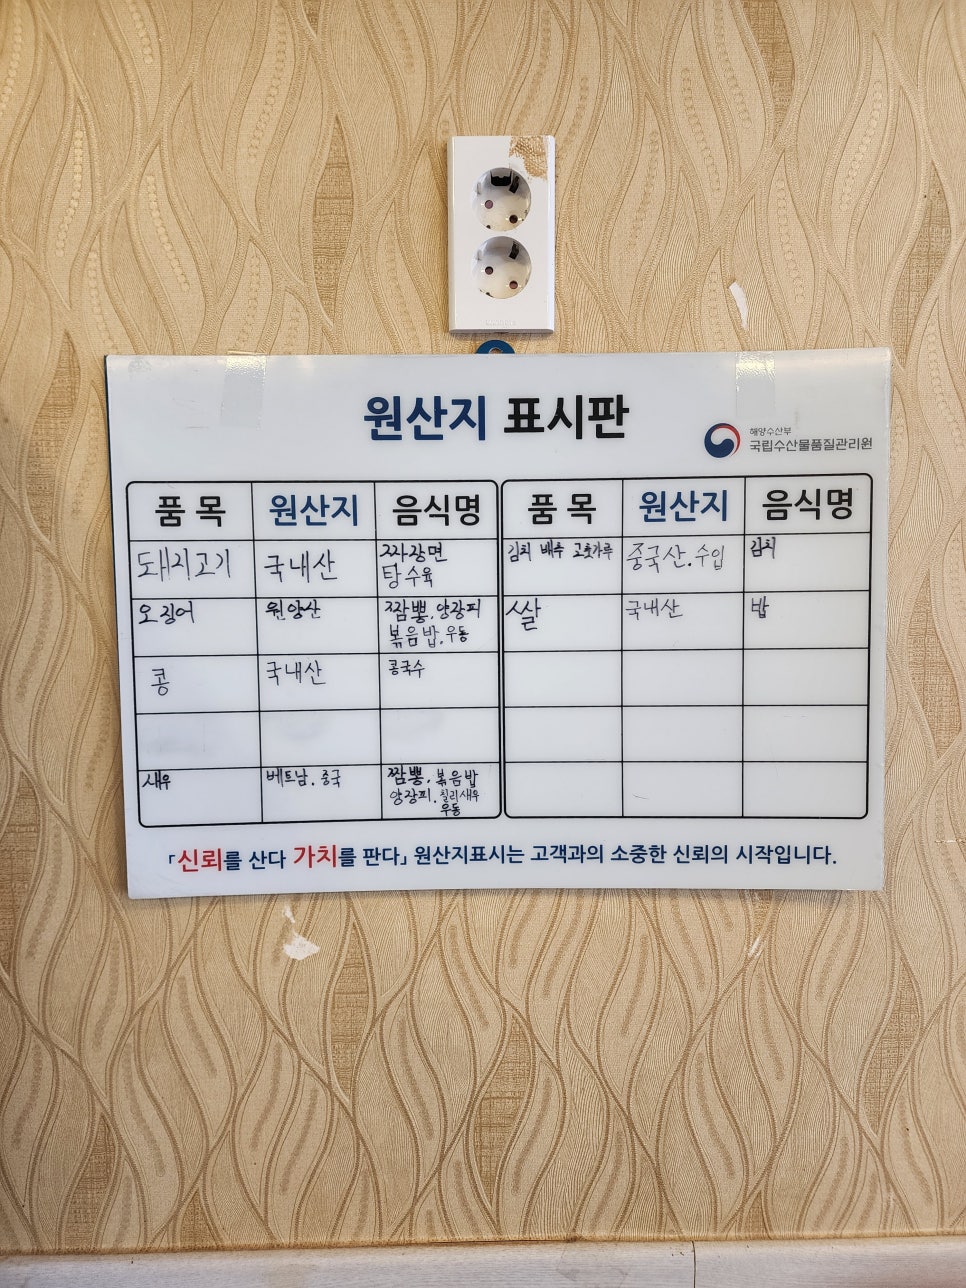 원산지 표시판
해양수산부
국립수산물품질관리원
품목 원산지 음식명 품목 원산지 음식명
돼지고기 국내산 짜장면
탕수육
김치 배추 고춧가루 중국산.수입 김치
오징어 원양산 짬뽕.양장피
볶음밥.우동
쌀 국내산 밥
콩 국내산 콩국수
새우 베트남.중국 짬뽕.볶음밥
양장피.칠리새우
우동
「신뢰를 산다 가치를 판다」 원산지표시는 고객과의 소중한 신뢰의 시작입니다.